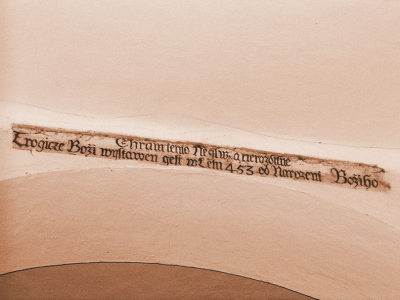 Chram tento Neyswietieyssie
Trogicze Boži wystawen gest w Letu 453 od Narozeni Božiho